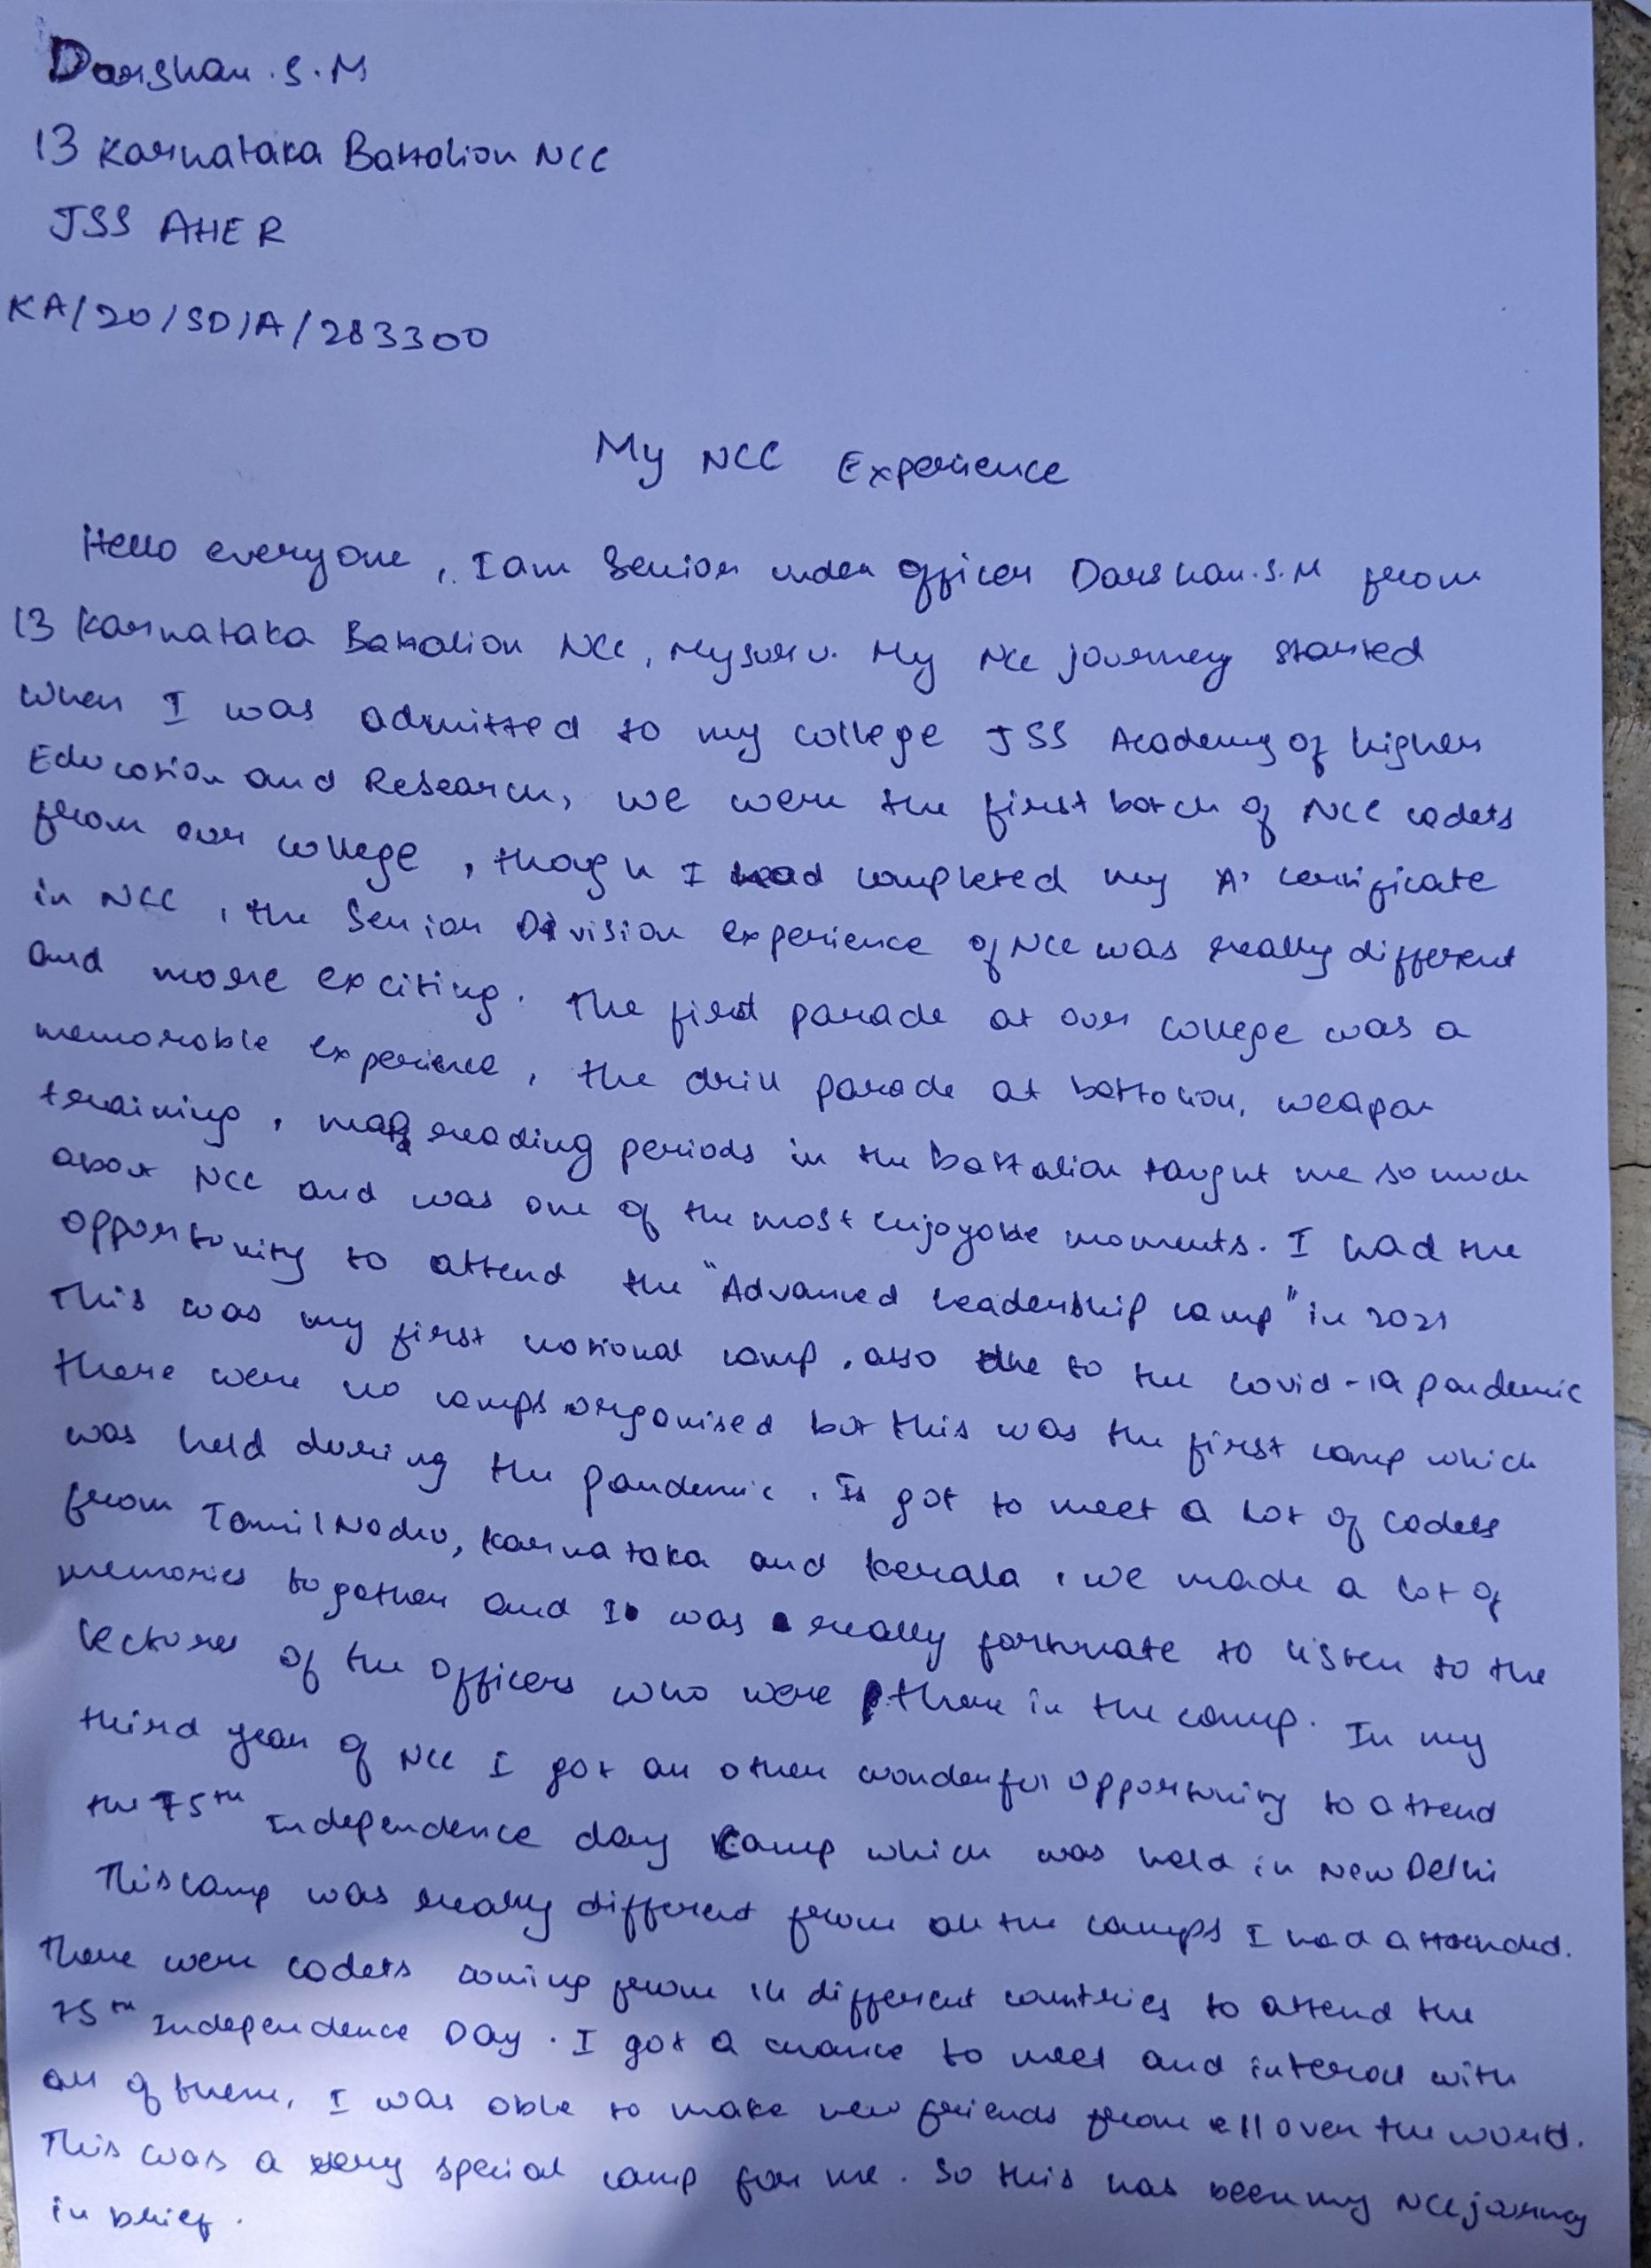 Darshan.S.M
13 Karnataka Battalion NCC
JSS AHER
KA/20/SD/A/283300
My NCC Experience
Hello everyone, I am Senior under officer Darshan.S.M from
13 Karnataka Battalion NCC, Mysuru. My NCC journey started
when I was admitted to my college JSS Academy of higher
Education and Research, we were the first batch of NCC cadets
from our college, though I had completed my 'A' certificate
in NCC, the Senior Division experience of NCC was really different
and more exciting. The first parade at our college was a
memorable experience, the drill parade at battalion, weapon
training, map reading periods in the battalion taught me so much
about NCC and was one of the most enjoyable moments. I had the
opportunity to attend the "Advanced Leadership camp" in 2021
This was my first national camp, also due to the covid-19 pandemic
there were no camps organised but this was the first camp which
was held during the pandemic. I got to meet a lot of cadets
from Tamil Nadu, Karnataka and Kerala, we made a lot of
memories together and I was really fortunate to listen to the
lectures of the officers who were there in the camp. In my
third year of NCC I got an other wonderful opportunity to attend
the 75th Independence day camp which was held in New Delhi
This camp was really different from all the camps I had attended.
There were cadets coming from 14 different countries to attend the
75th Independence Day. I got a chance to meet and interact with
all of them, I was able to make new friends from all over the world.
This was a very special camp for me. So this has been my NCC journey
in brief.